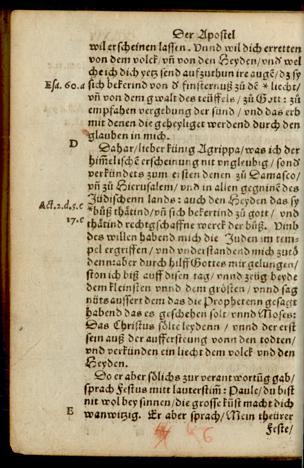 Der Apostel
wil erscheinen lassen. Vnnd wil dich erretten
von dem volck/ vn̄ von den Heyden/ vn̄ wel
che ich dich yetz send auffzuthun ire augē/ dz sy
Esa. 60.a sich bekerind von d' finsternuß zů dē * liecht/
vn̄ von dem gwalt des teüffels/ zů Gott: zů
empfahen vergebung der sünd/ vnd das erb
mit denen die geheyliget werdend durch den
glauben in mich.
D Dahar/ lieber künig Agrippa/ was ich der
him̄elischē erscheinung nit vngleubig/ sond'
verkündets zum ersten denen zů Damasco/
vn̄ zů Hierusalem/ vnd in allen gegninē des
Jüdischenn lands: auch den Heyden das sy
Act.2.d.5.c bůß thätind/ vn̄ sich bekertind zů gott/ vnd
17.e thätind rechtgschaffne werck der bůß. Vmb
des willen habend mich die Juden im tem-
pel ergriffen/ vnd vnderstanden mich zutö
denn: aber durch hilff Gottes mir gelungen/
ston ich biß auff disen tag/ vnnd zeüg beyde
dem kleinsten vnnd dem grösten/ vnnd sag
nüts aussert dem das die Prophetenn gesagt
habend das es geschehen sölt vnnd Moses:
Das Christus sölte leydenn/ vnnd der erst
sein auß der aufferstteung vonn den todten/
vnd verkünden ein liecht dem volck vnd den
Heyden.
Do er aber sölichs zur verantwortūg gab/
sprach Festus mit lauter stim̄: Paule/ du bist
nit wol bey sinnen/ die grosse küst macht dich
E wanwitzig. Er aber sprach/ Mein theürer
Feste/